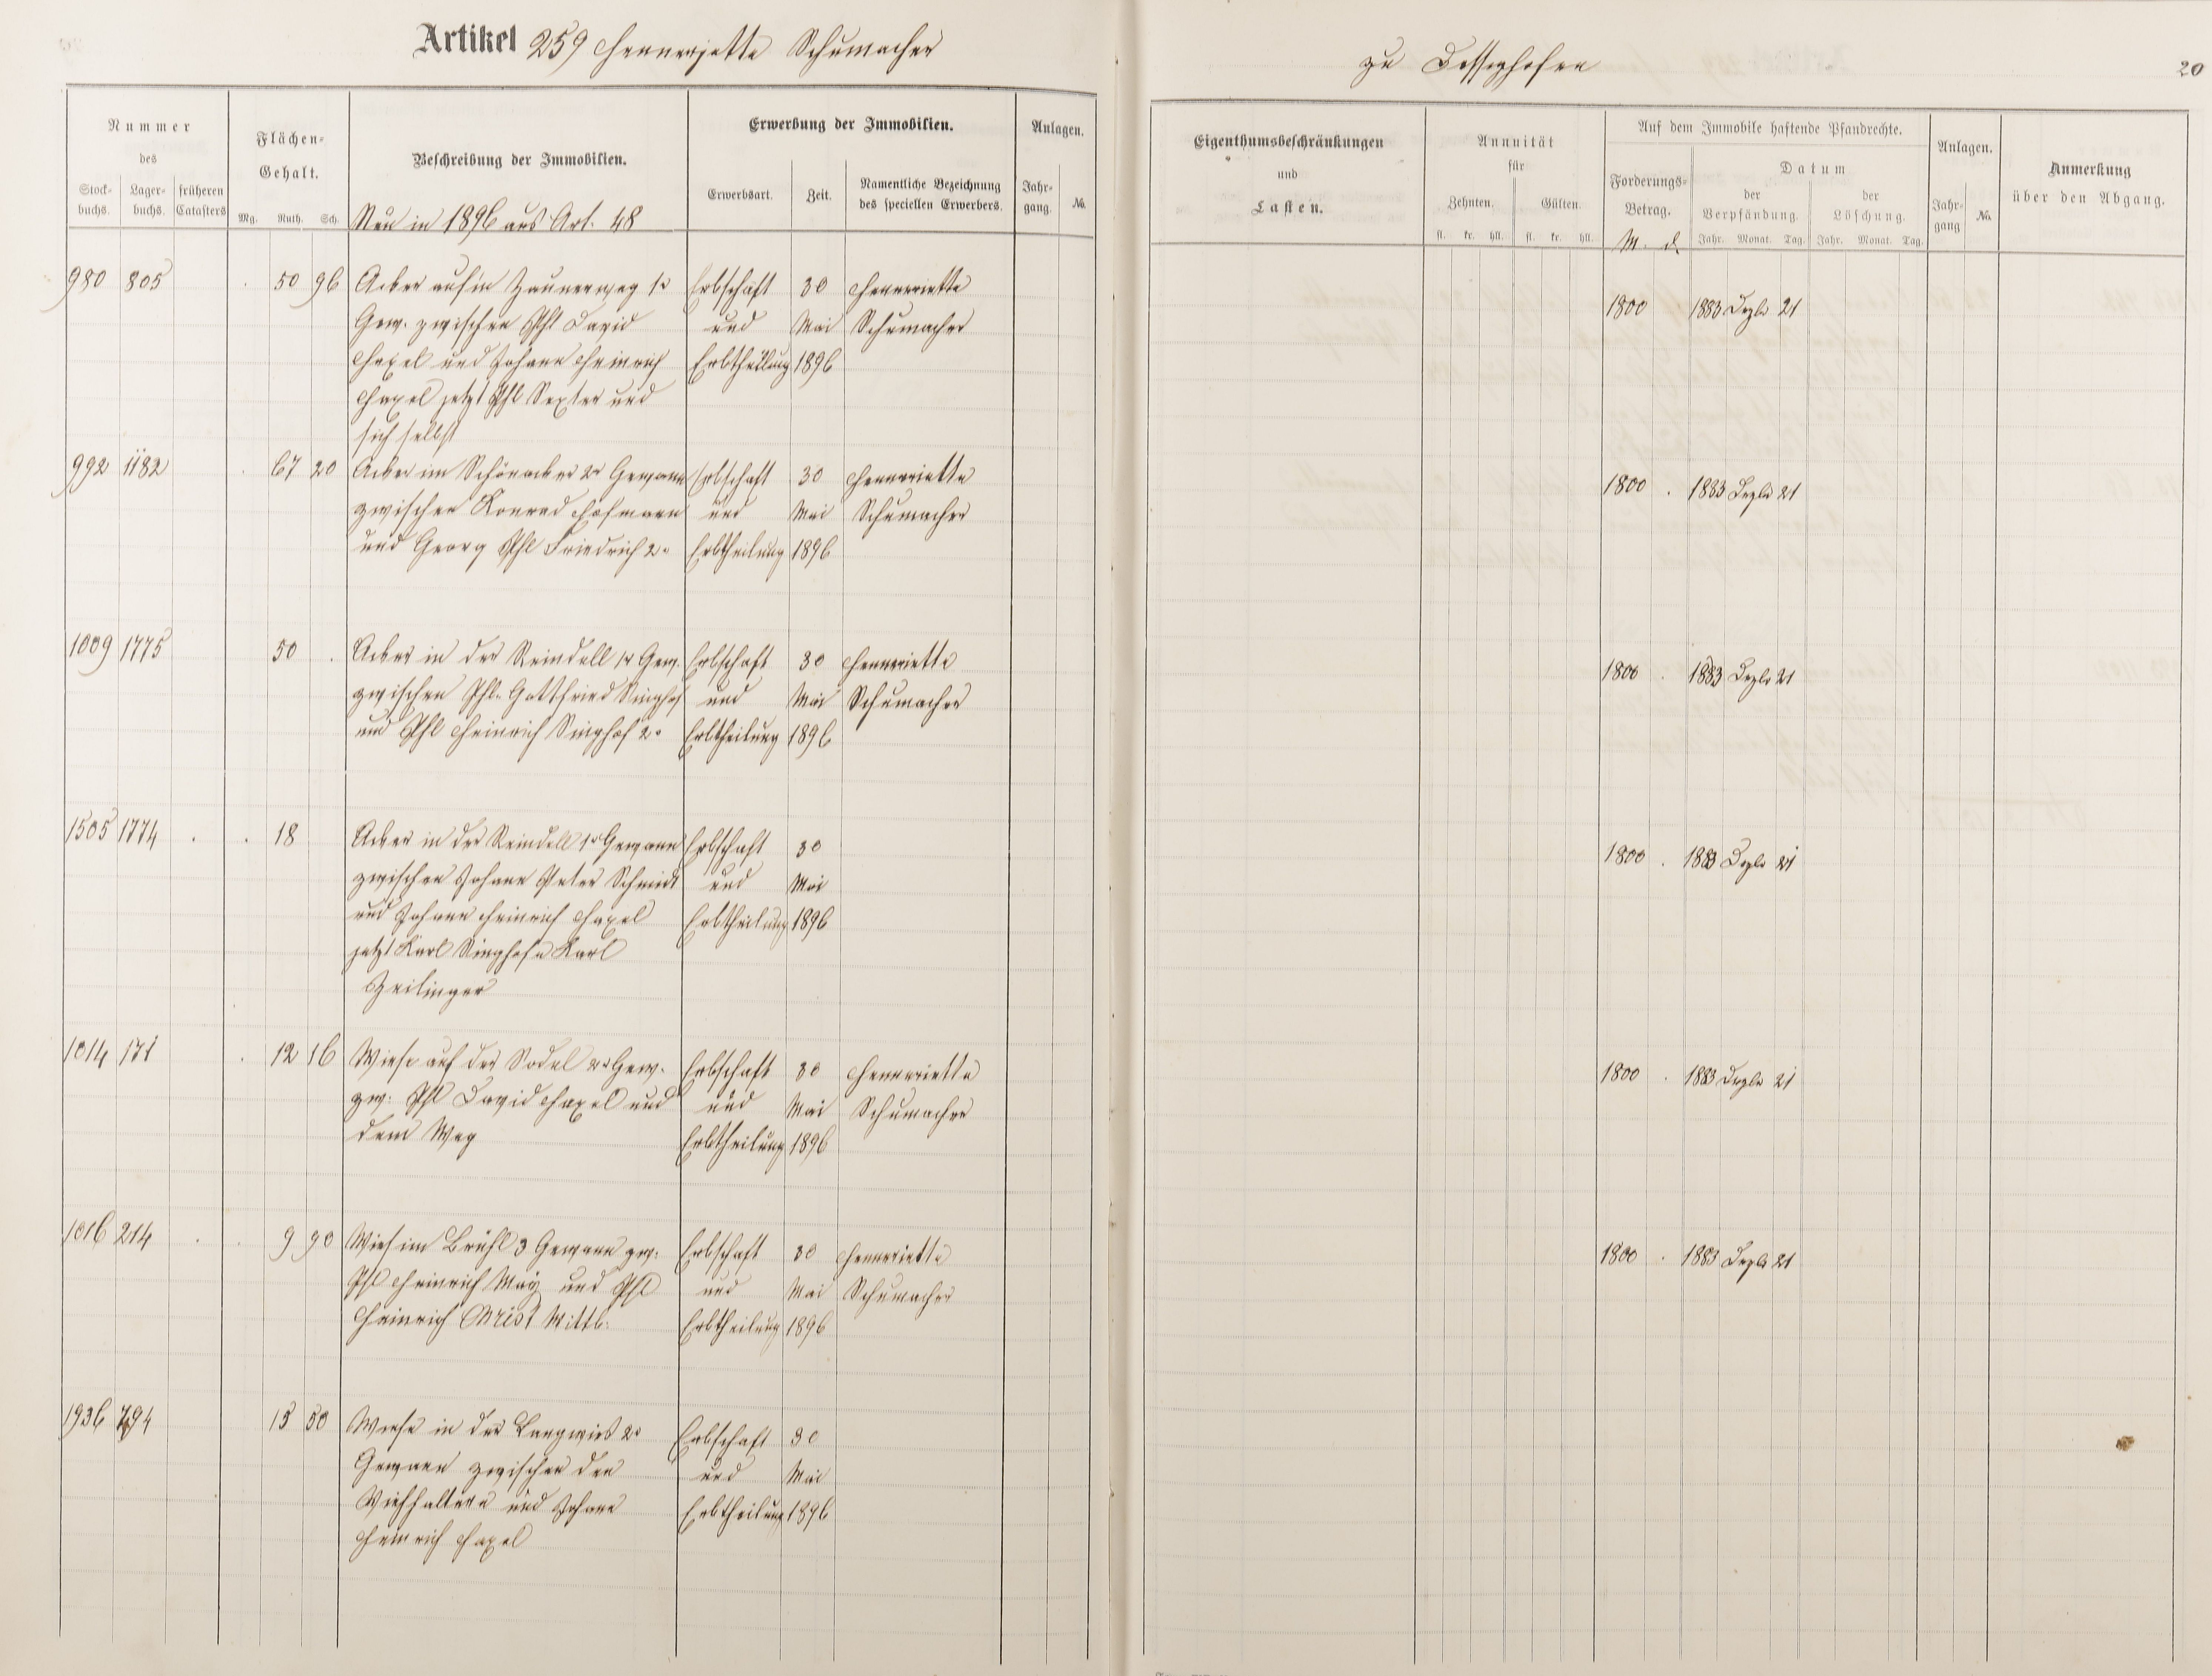 Artikel 259 Hennerjette Schumacher
zu Dessighofen
20
Nummer
des
Stockbuchs.
Lagerbuchs.
früheren Catasters
Flächen-
Gehalt.
Mg. Ruth. Sch.
Beschreibung der Immobilien.
Neu in 1896 aus Art. 48
Erwerbung der Immobilien.
Erwerbsart.
Zeit.
Namentliche Bezeichnung
des speciellen Erwerbers.
Anlagen.
Jahrgang.
No.
Eigenthumsbeschränkungen
und
Lasten.
Annuität
für
Zehnten.
Gülten.
fl. kr. hll. fl. kr. hll.
Auf dem Immobile haftende Pfandrechte.
Forderungs-
Betrag.
M. d.
Datum
der
Verpfändung.
der
Löschung.
Jahr. Monat. Tag. Jahr. Monat. Tag.
Anlagen.
Jahrgang
No.
Anmerkung
über den Abgang.
980 805 50 96 Acker auf'm Zaunerweg 1r Erbschaft 30 Hennriette 1800 1883 Dezbr 21
Gew. zwischen Phl David und Mai Schumacher
Haxel und Johann Heinrich Erbtheilung 1896
Haxel jetzt Phl Sexter und
sich selbst
992 1182 67 20 Acker im Schönacker 2r Gewann Erbschaft 30 Hennriette 1800 . 1883 Dezbr 21
zwischen Konrad Hofmann und Mai Schumacher
und Georg Phl Friedrich 2r Erbtheilung 1896
1009 1775 50 . Acker in der Reindell 1r Gew. Erbschaft 30 Hennriette 1800 . 1883 Dezbr 21
zwischen Phl. Gottfried Singhof und Mai Schumacher
und Phl Heinrich Singhof 2r Erbtheilung 1896
1505 1774 18 Acker in der Reindell 1r Gewann Erbschaft 30 1800 . 1883 Dezbr 21
zwischen Johann Peter Schmidt und Mai
und Johann Heinrich Haxel Erbtheilung 1896
jetzt Karl Singhof u Karl
Zeilinger
1014 171 12 16 Wiese auf der Sodel 2r Gew. Erbschaft 30 Hennriette 1800 . 1883 Dezbr 21
zw. Phl David Haxel und und Mai Schumacher
dem Weg Erbtheilung 1896
1016 214 9 90 Wies im Brühl 3 Gewann zw. Erbschaft 30 Hennriette 1800 . 1883 Dezbr 21
Phl Heinrich May und Phl und Mai Schumacher
Heinrich Christ Wittb. Erbtheilung 1896
1936 794 15 50 Wiese in der Langwies 2r Erbschaft 30
Gewann zwischen den und Mai
Viehhaltern und Johann Erbtheilung 1896
Heinrich Haxel